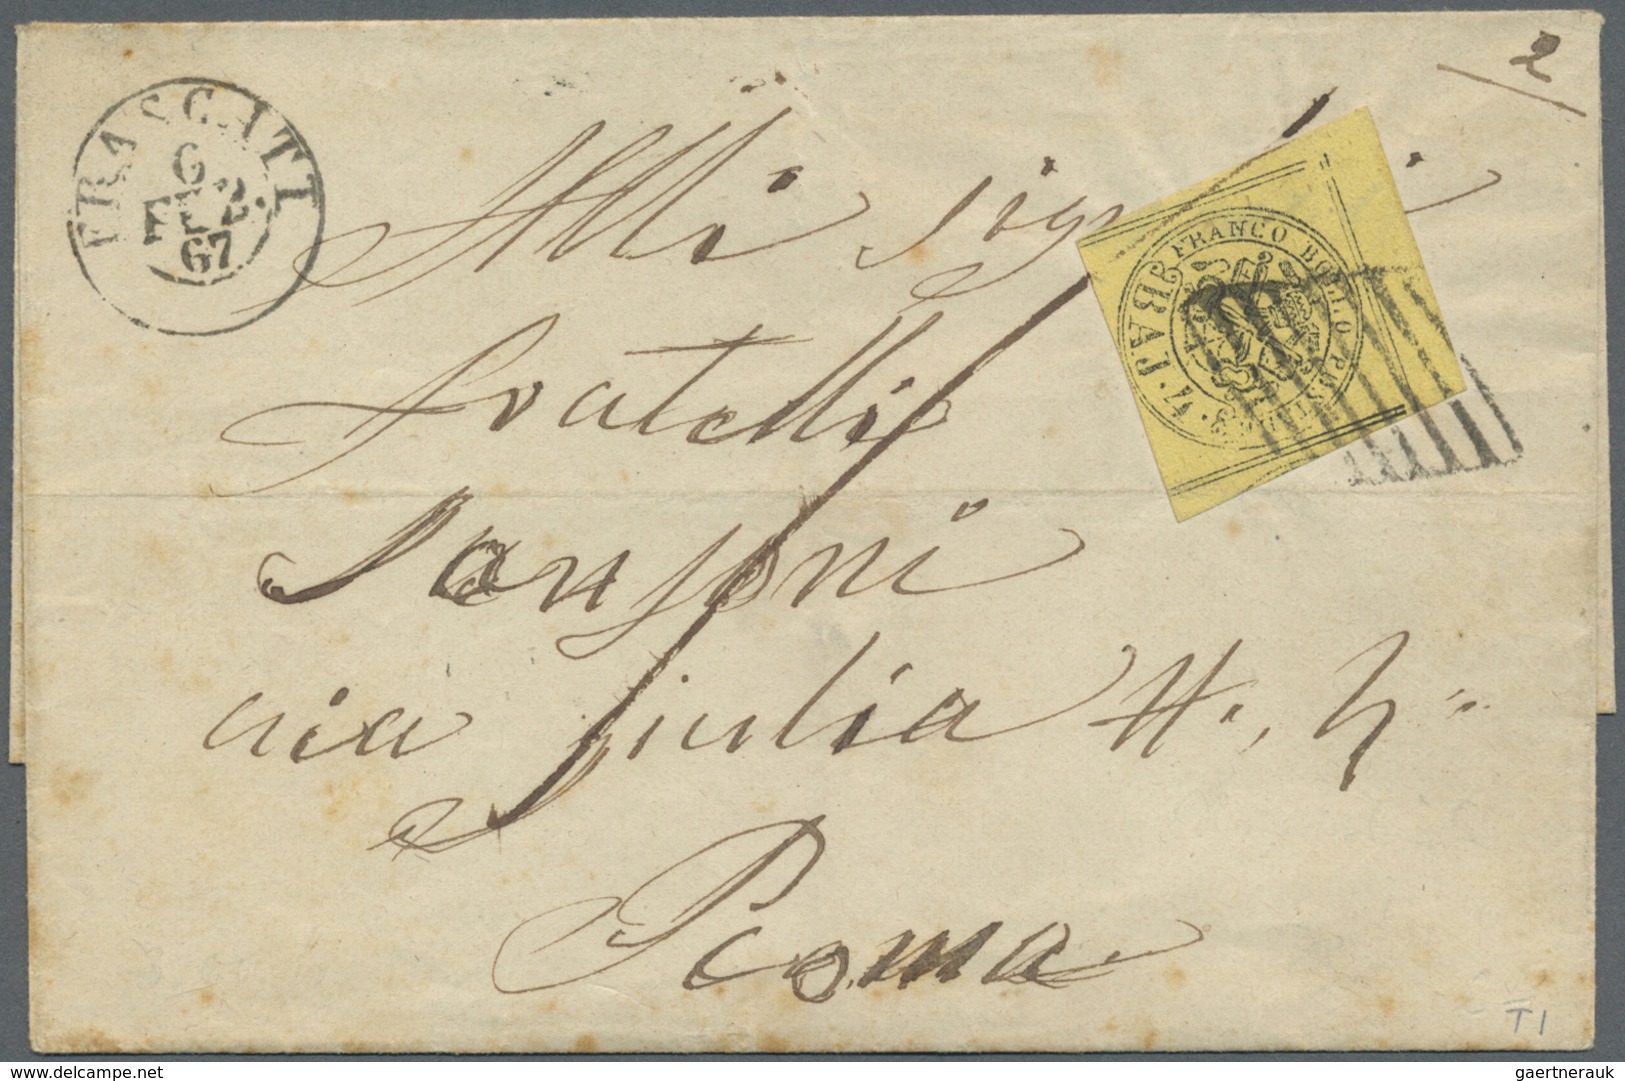 2
FRASCATI
6
FEB.
67
FRANCO BOLLO POSTALE
Alli sig
Fratelli
Sansoni
via Giulia N.
Roma
T1
www.delcampe.net
gaertnerauk